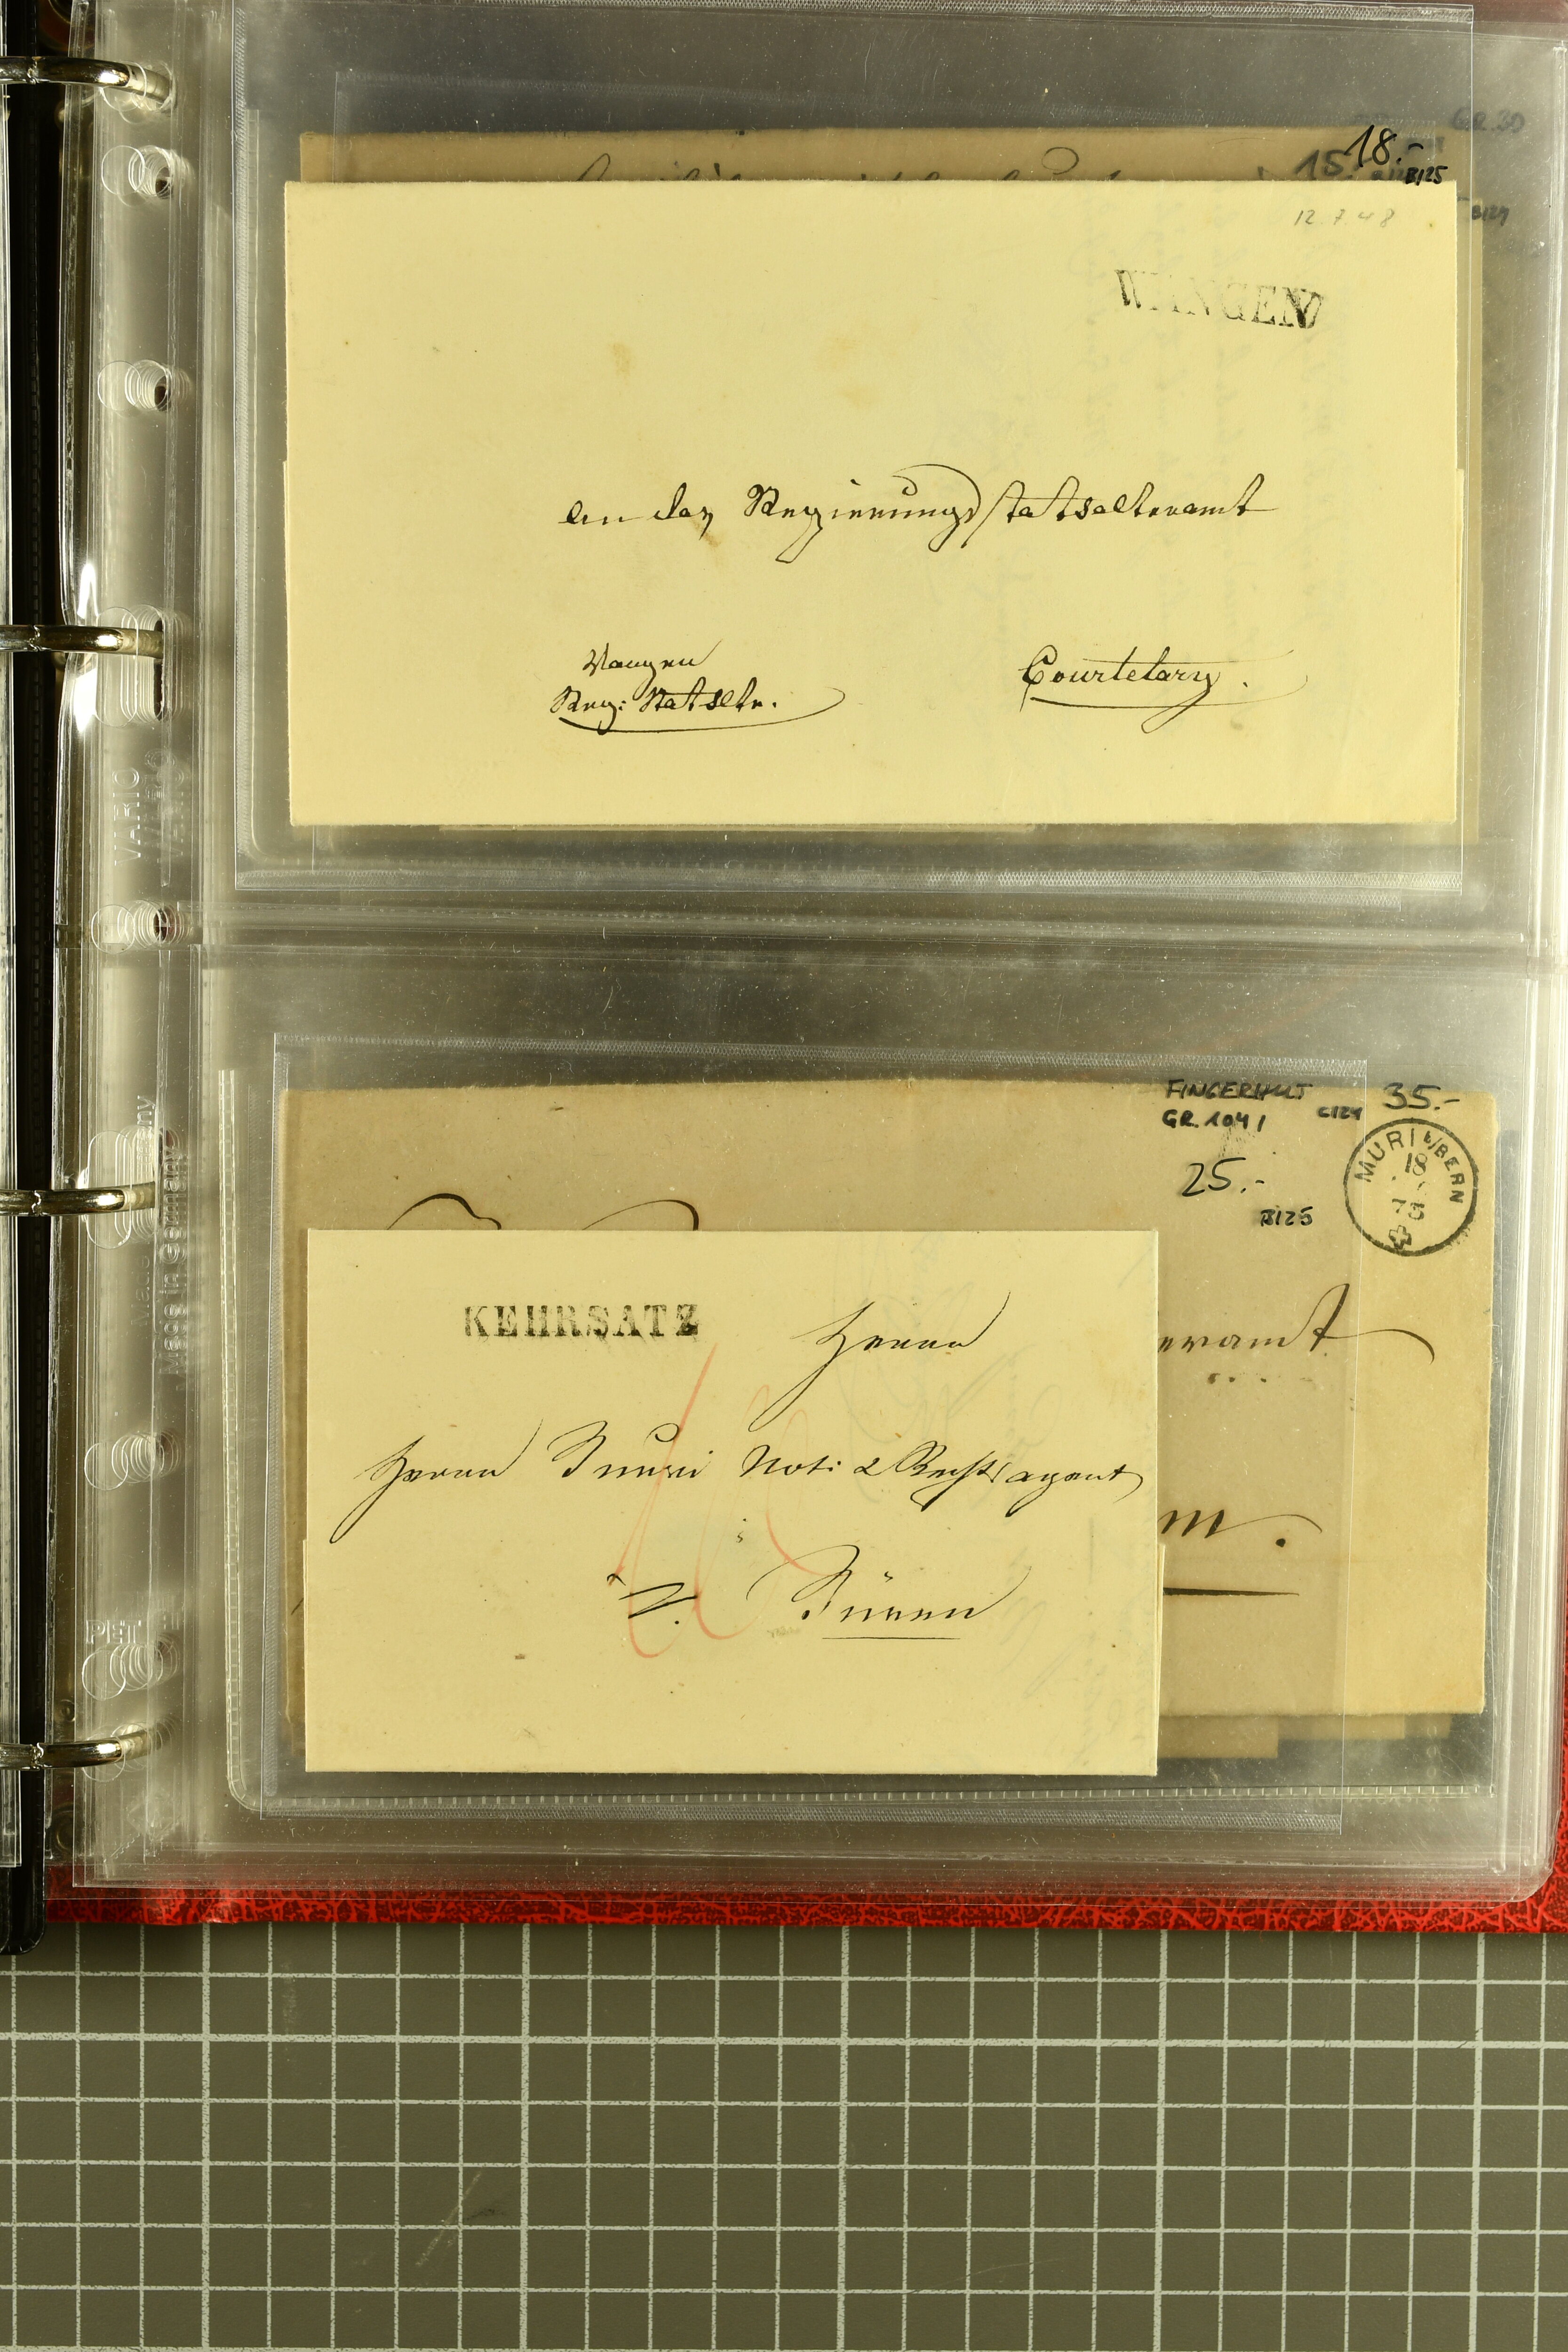 GR. 30
18.-
15.-
B125
B124
12.7.48
WANGEN
An das Regierungsstatthalteramt
Wangen
Reg: Statthltr.
Courtelary.
VARIO
FINGERHUT
GR. 104 I
C124
35.-
25.-
B125
MURI b/BERN
18
KEHRSATZ
Herrn
eramt
Herrn Not: & Rechtsagent
m.
Büren
Made in Germany
PET